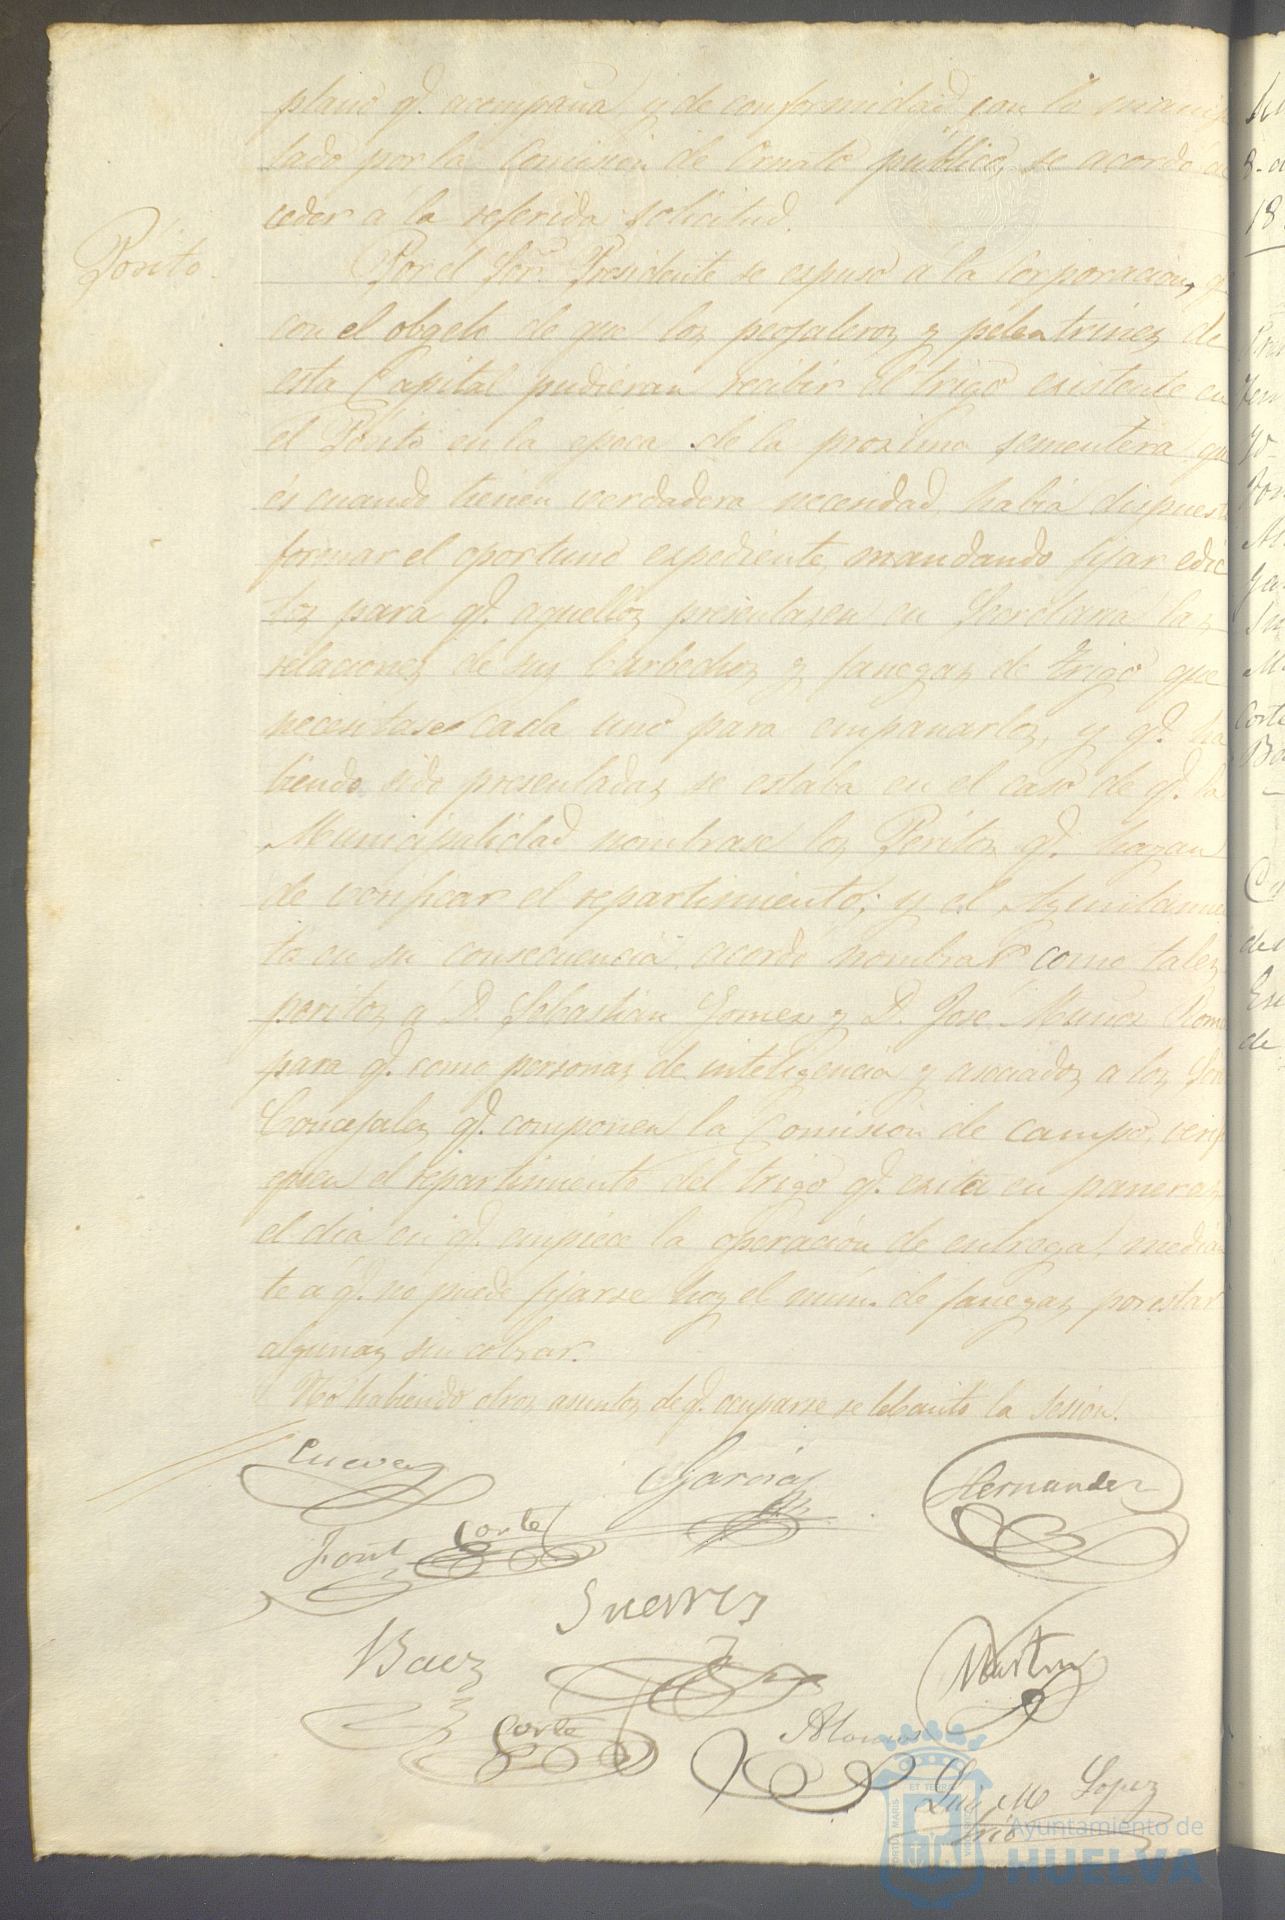 plano q.e acompaña, y de conformidad con lo manifes
tado por la Comision de Ornato público, se acordó ac
ceder á la referida solicitud.
Pósito.
Por el Sor. Presidente se espuso á la Corporacion, q.e
con el obgeto de que los pegujaleros y pelentrines de
esta Capital pudieran recibir el trigo existente en
el Pósito en la época de la procsima sementera que
és cuando tienen verdadera necesidad, habia dispuesto
formar el oportuno espediente, mandando fijar edic
tos para q.e aquellos presentasen en Secretaria las
relaciones de sus barbechos y fanegas de trigo que
necesitase cada uno para empanarlos, y q.e ha
biendo sido presentadas se estaba en el caso de q.e la
Municipalidad nombrase los Peritos q.e hayan
de verificar el repartimiento; y el Ayuntamien
to en su consecuencia acordó nombrar como tales
peritos a D. Sebastian Gomez y D. José Muñoz Rome
para q.e como personas de inteligencia y asociados a los Sres
Concejales q.e componen la Comision de campo, verifi
quen el repartimiento del trigo q.e exita en paneras
el dia en q.e empiece la operacion de entrega, median
te a q.e no puede fijarse hoy el núm. de fanegas por estar
algunas sin cobrar.
No habiendo otros asuntos de q.e ocuparse se lebantó la Sesion.
Cuevas
Garcia
Hernandez
Font
Corte
Suerrez
Baez
Martin
Corte
Alonso
Luis M Lopez
Srio
PORTUS MARIS ET TERRAE CUSTODIA
Ayuntamiento de
HUELVA
8. d
18
Corte
de
de